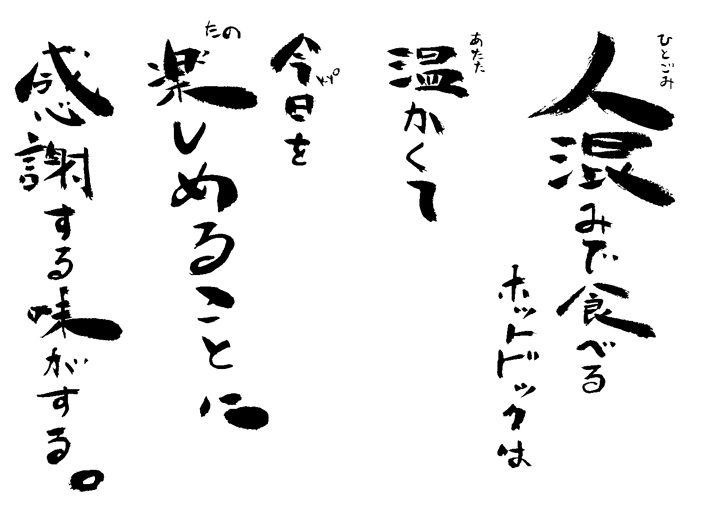 人混みで食べる
ひとごみ
ホットドックは
温かくて
あたた
今日を
きょう
楽しめることに
たの
感謝する味がする。